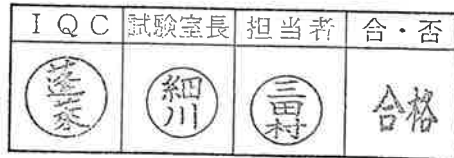 IQC 試験室長 担当者 合・否
蓬莱 細川 三田村 合格